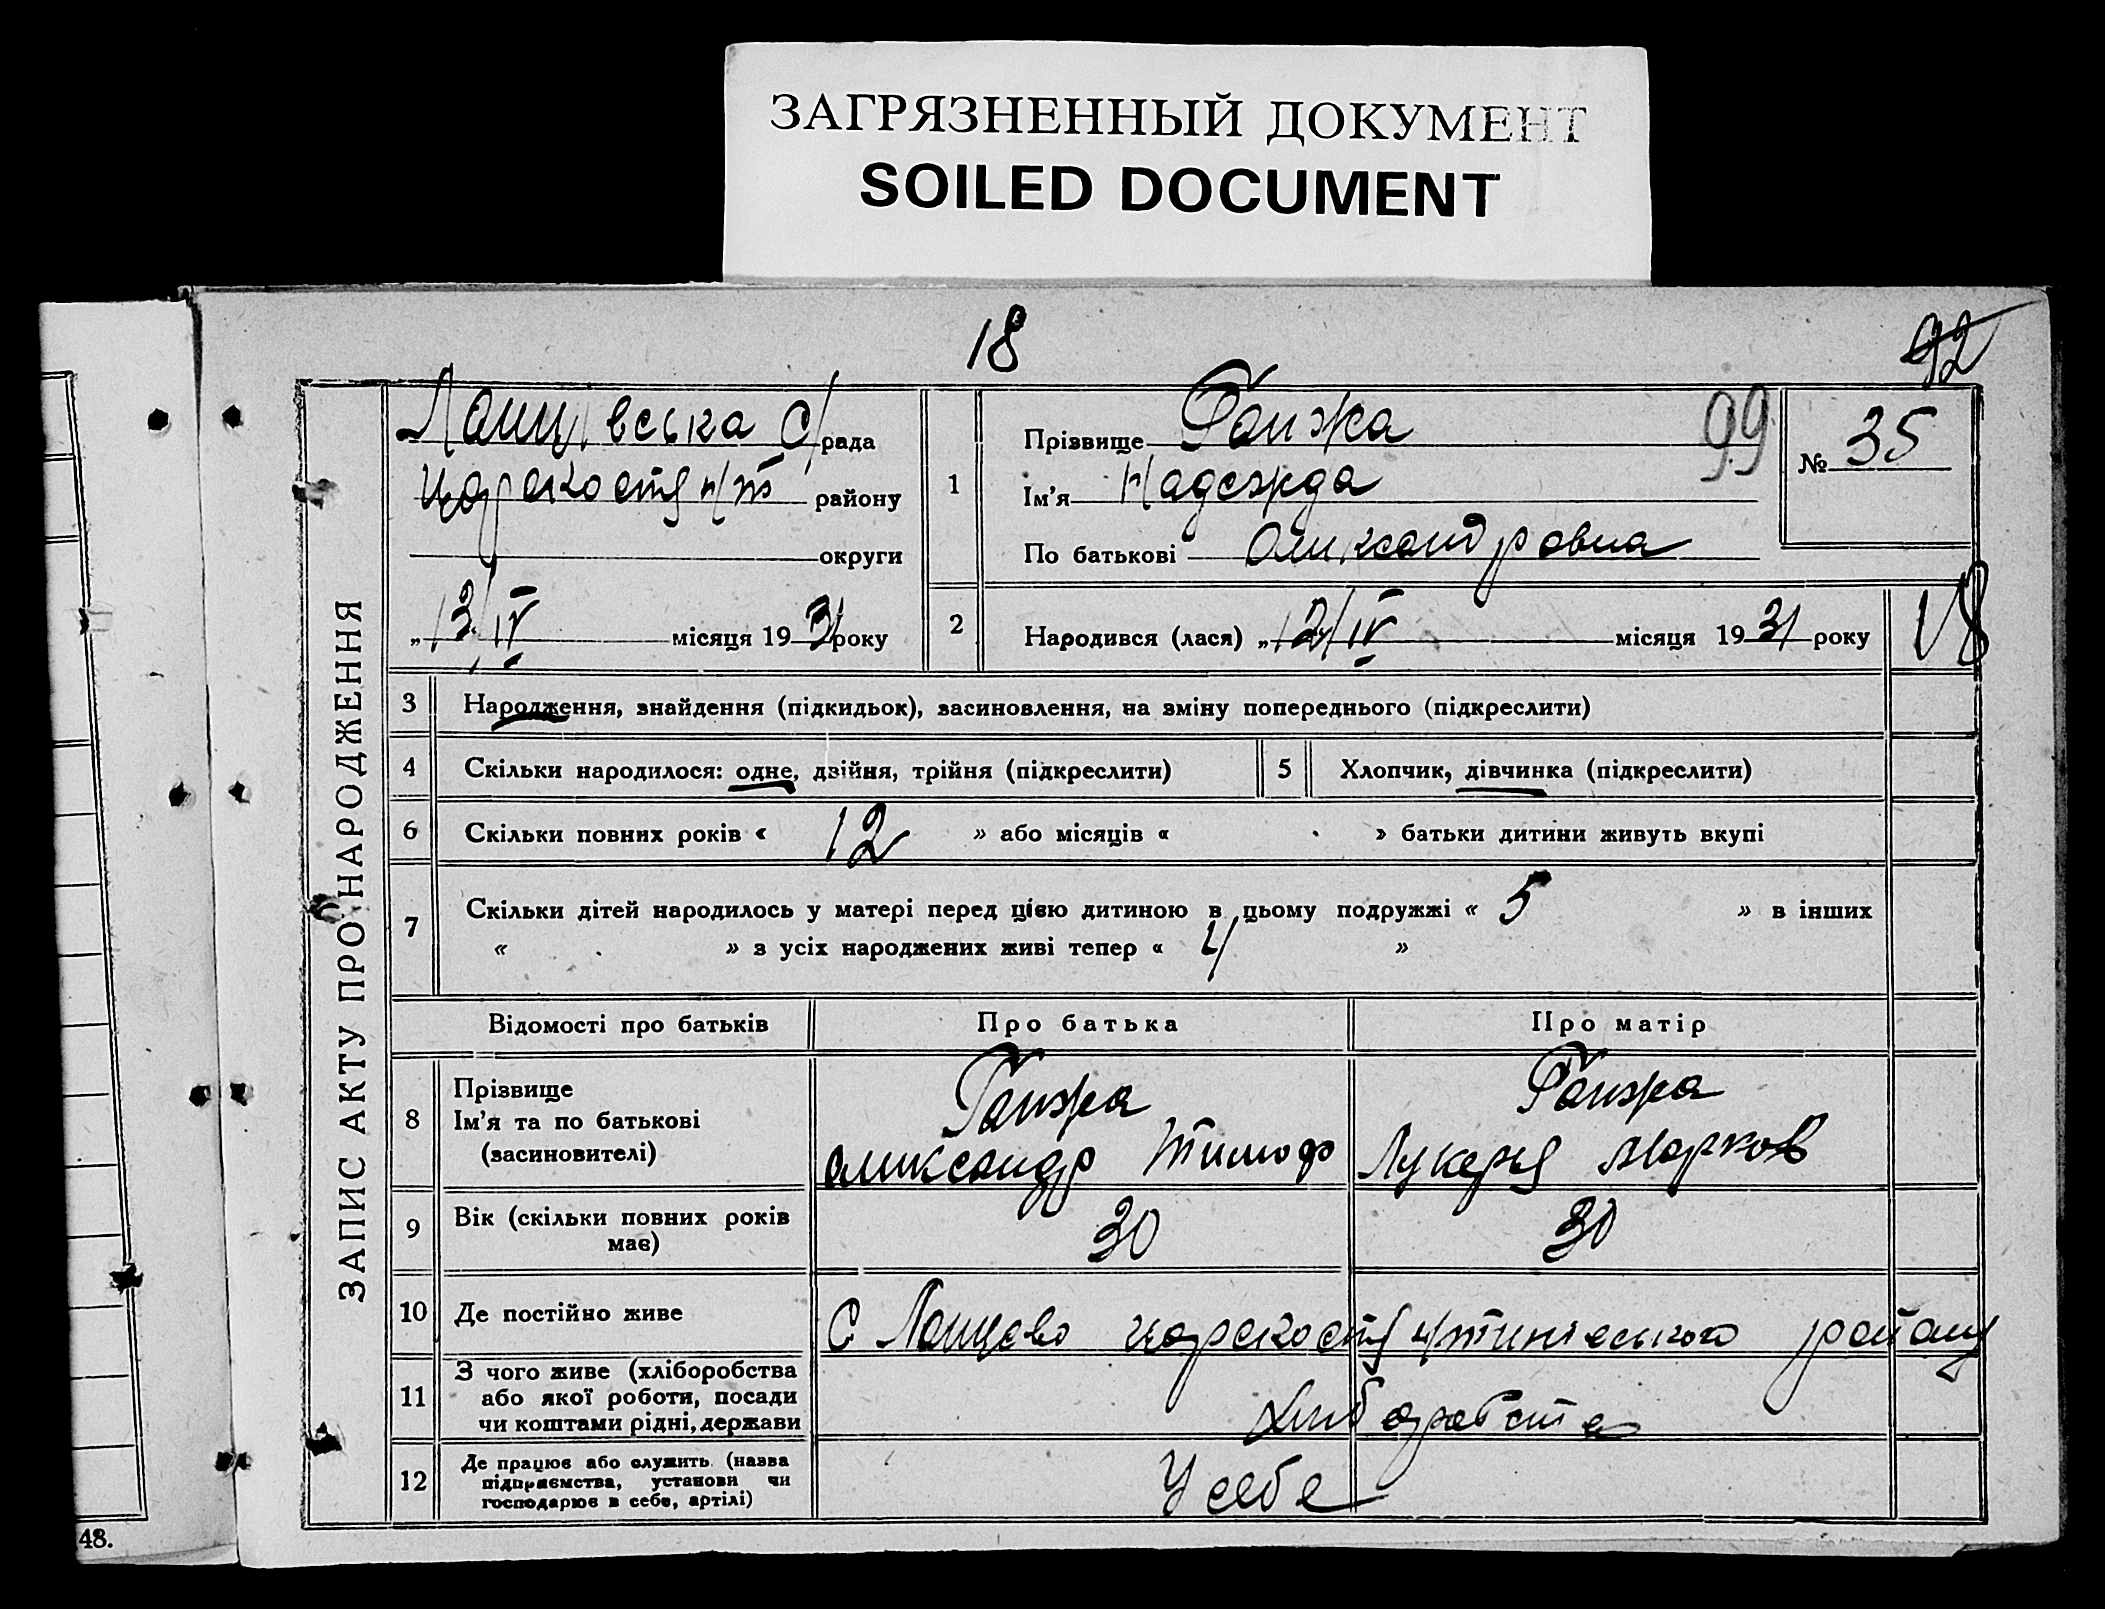 ЗАГРЯЗНЕННЫЙ ДОКУМЕНТ
SOILED DOCUMENT
18
92
ЗАПИС АКТУ ПРО НАРОДЖЕННЯ
рада
району
округи
„13/IV місяця 1931 року
1
Прізвище Ганжа
99
Ім’я Надежда
По батькові
№ 35
2
Народився (лася) „12/IV місяця 1931 року
18
3 Народження, знайдення (підкидьок), васиновлення, на зміну попереднього (підкреслити)
4 Скільки народилося: одне, двійня, трійня (підкреслити) 5 Хлопчик, дівчинка (підкреслити)
6 Скільки повних років « 12 » або місяців « » батьки дитини живуть вкупі
7 Скільки дітей народилось у матері перед цією дитиною в цьому подружжі « 5 » в інших
« » з усіх народжених живі тепер « 4 »
Відомості про батьків Про батька Про матір
8 Прізвище Ганжа Ганжа
Ім’я та по батькові
(васиновителі) Александр Тимоф Лукеря Марков
9 Вік (скільки повних років
має) 30 30
10 Де постійно живе С району
11 З чого живе (хліборобства
або якої роботи, посади
чи коштами рідні, держави
12 Де працює або служить (назва
підприємства, установи чи
господарює в себе, артілі)
У себе
48.